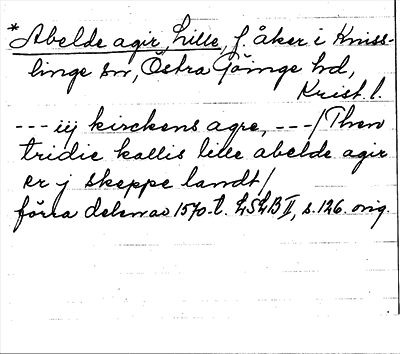 *Abelde agir, Lille, f. åker i Kniss-
linge sn, Östra Göinge hd,
Krist. l.
--- iij kirckens agre, ---/Then
tridie kallis lille abelde agir
er j skeppe landt/
förra delen av 1570-t. LSLB II, s. 126. orig.